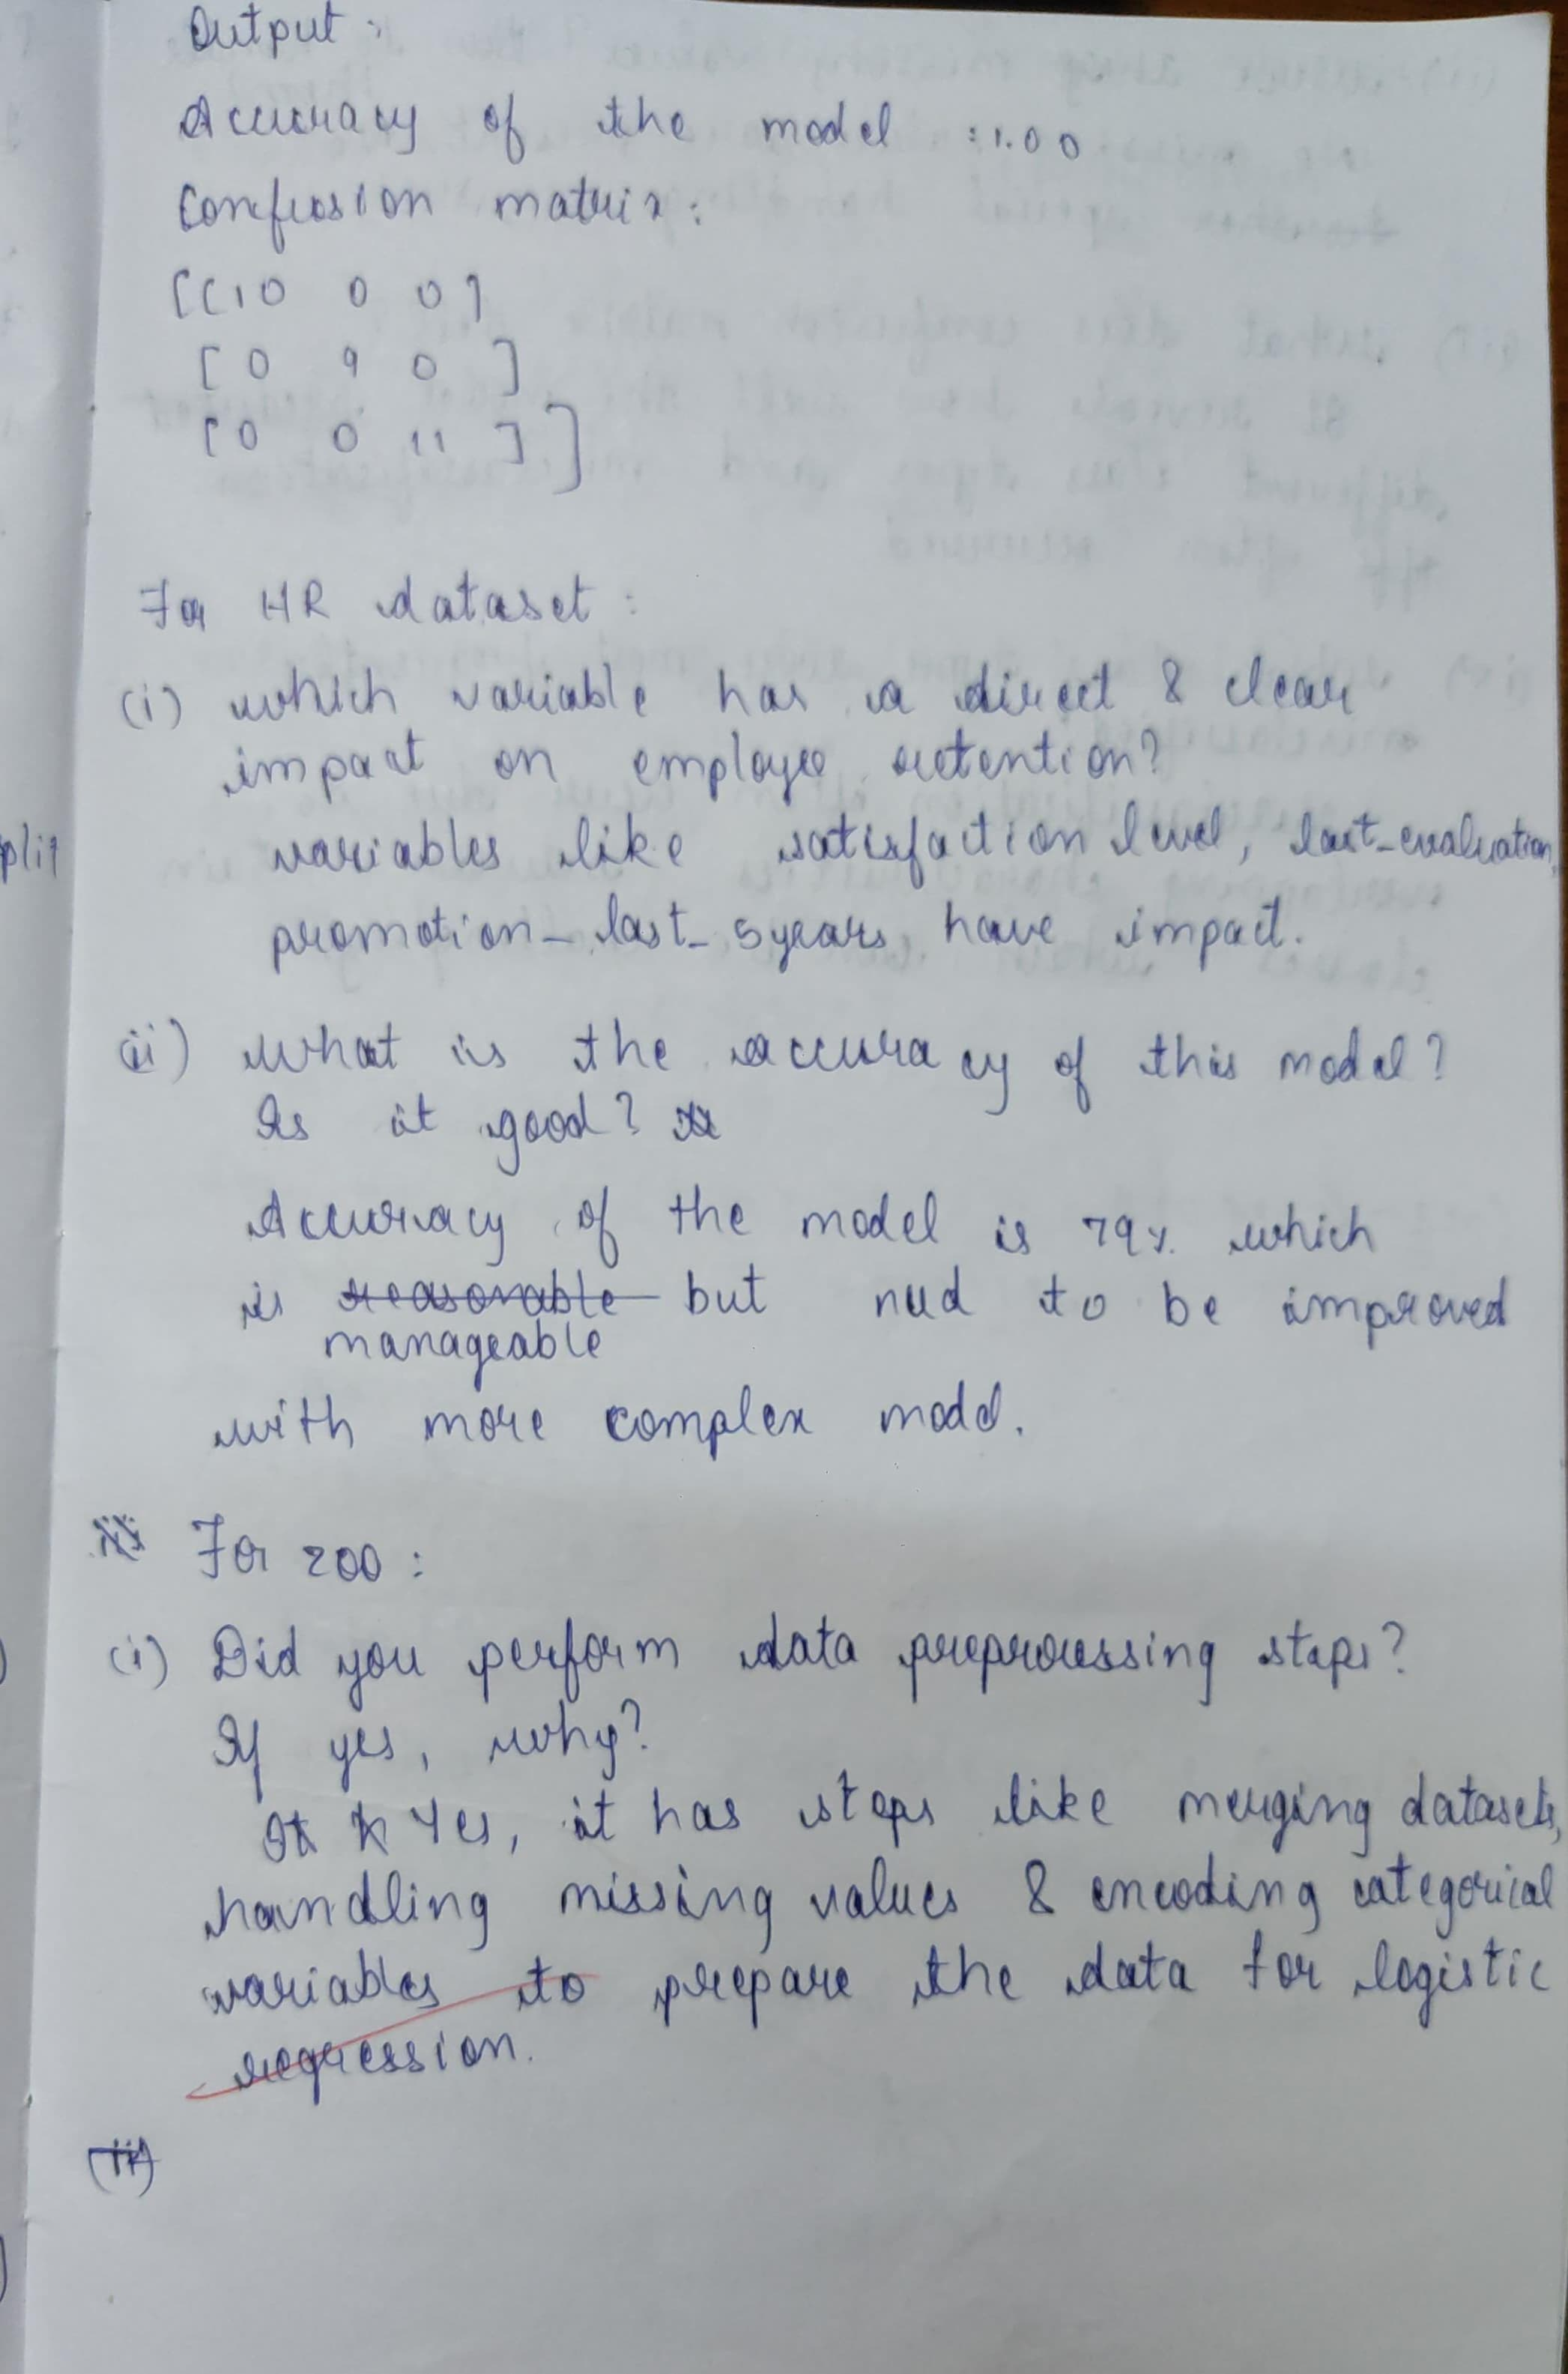 Output:
Accuracy of the model : 1.00
Confusion matrix:
[[10 0 0]
[0 9 0]
[0 0 11]]
For HR dataset:
(i) which variable has a direct & clear
impact on employee retention?
variables like satisfaction level, last_evaluation,
plit
promotion_last_5years have impact.
(ii) What is the accuracy of this model?
Is it good?
Accuracy of the model is 79% which
is reasonable but need to be improved
manageable
with more complex model.
For zoo:
(i) Did you perform data preprocessing steps?
If yes, why?
Yes, it has steps like merging datasets,
handling missing values & encoding categorical
variables to prepare the data for logistic
regression.
(ii)